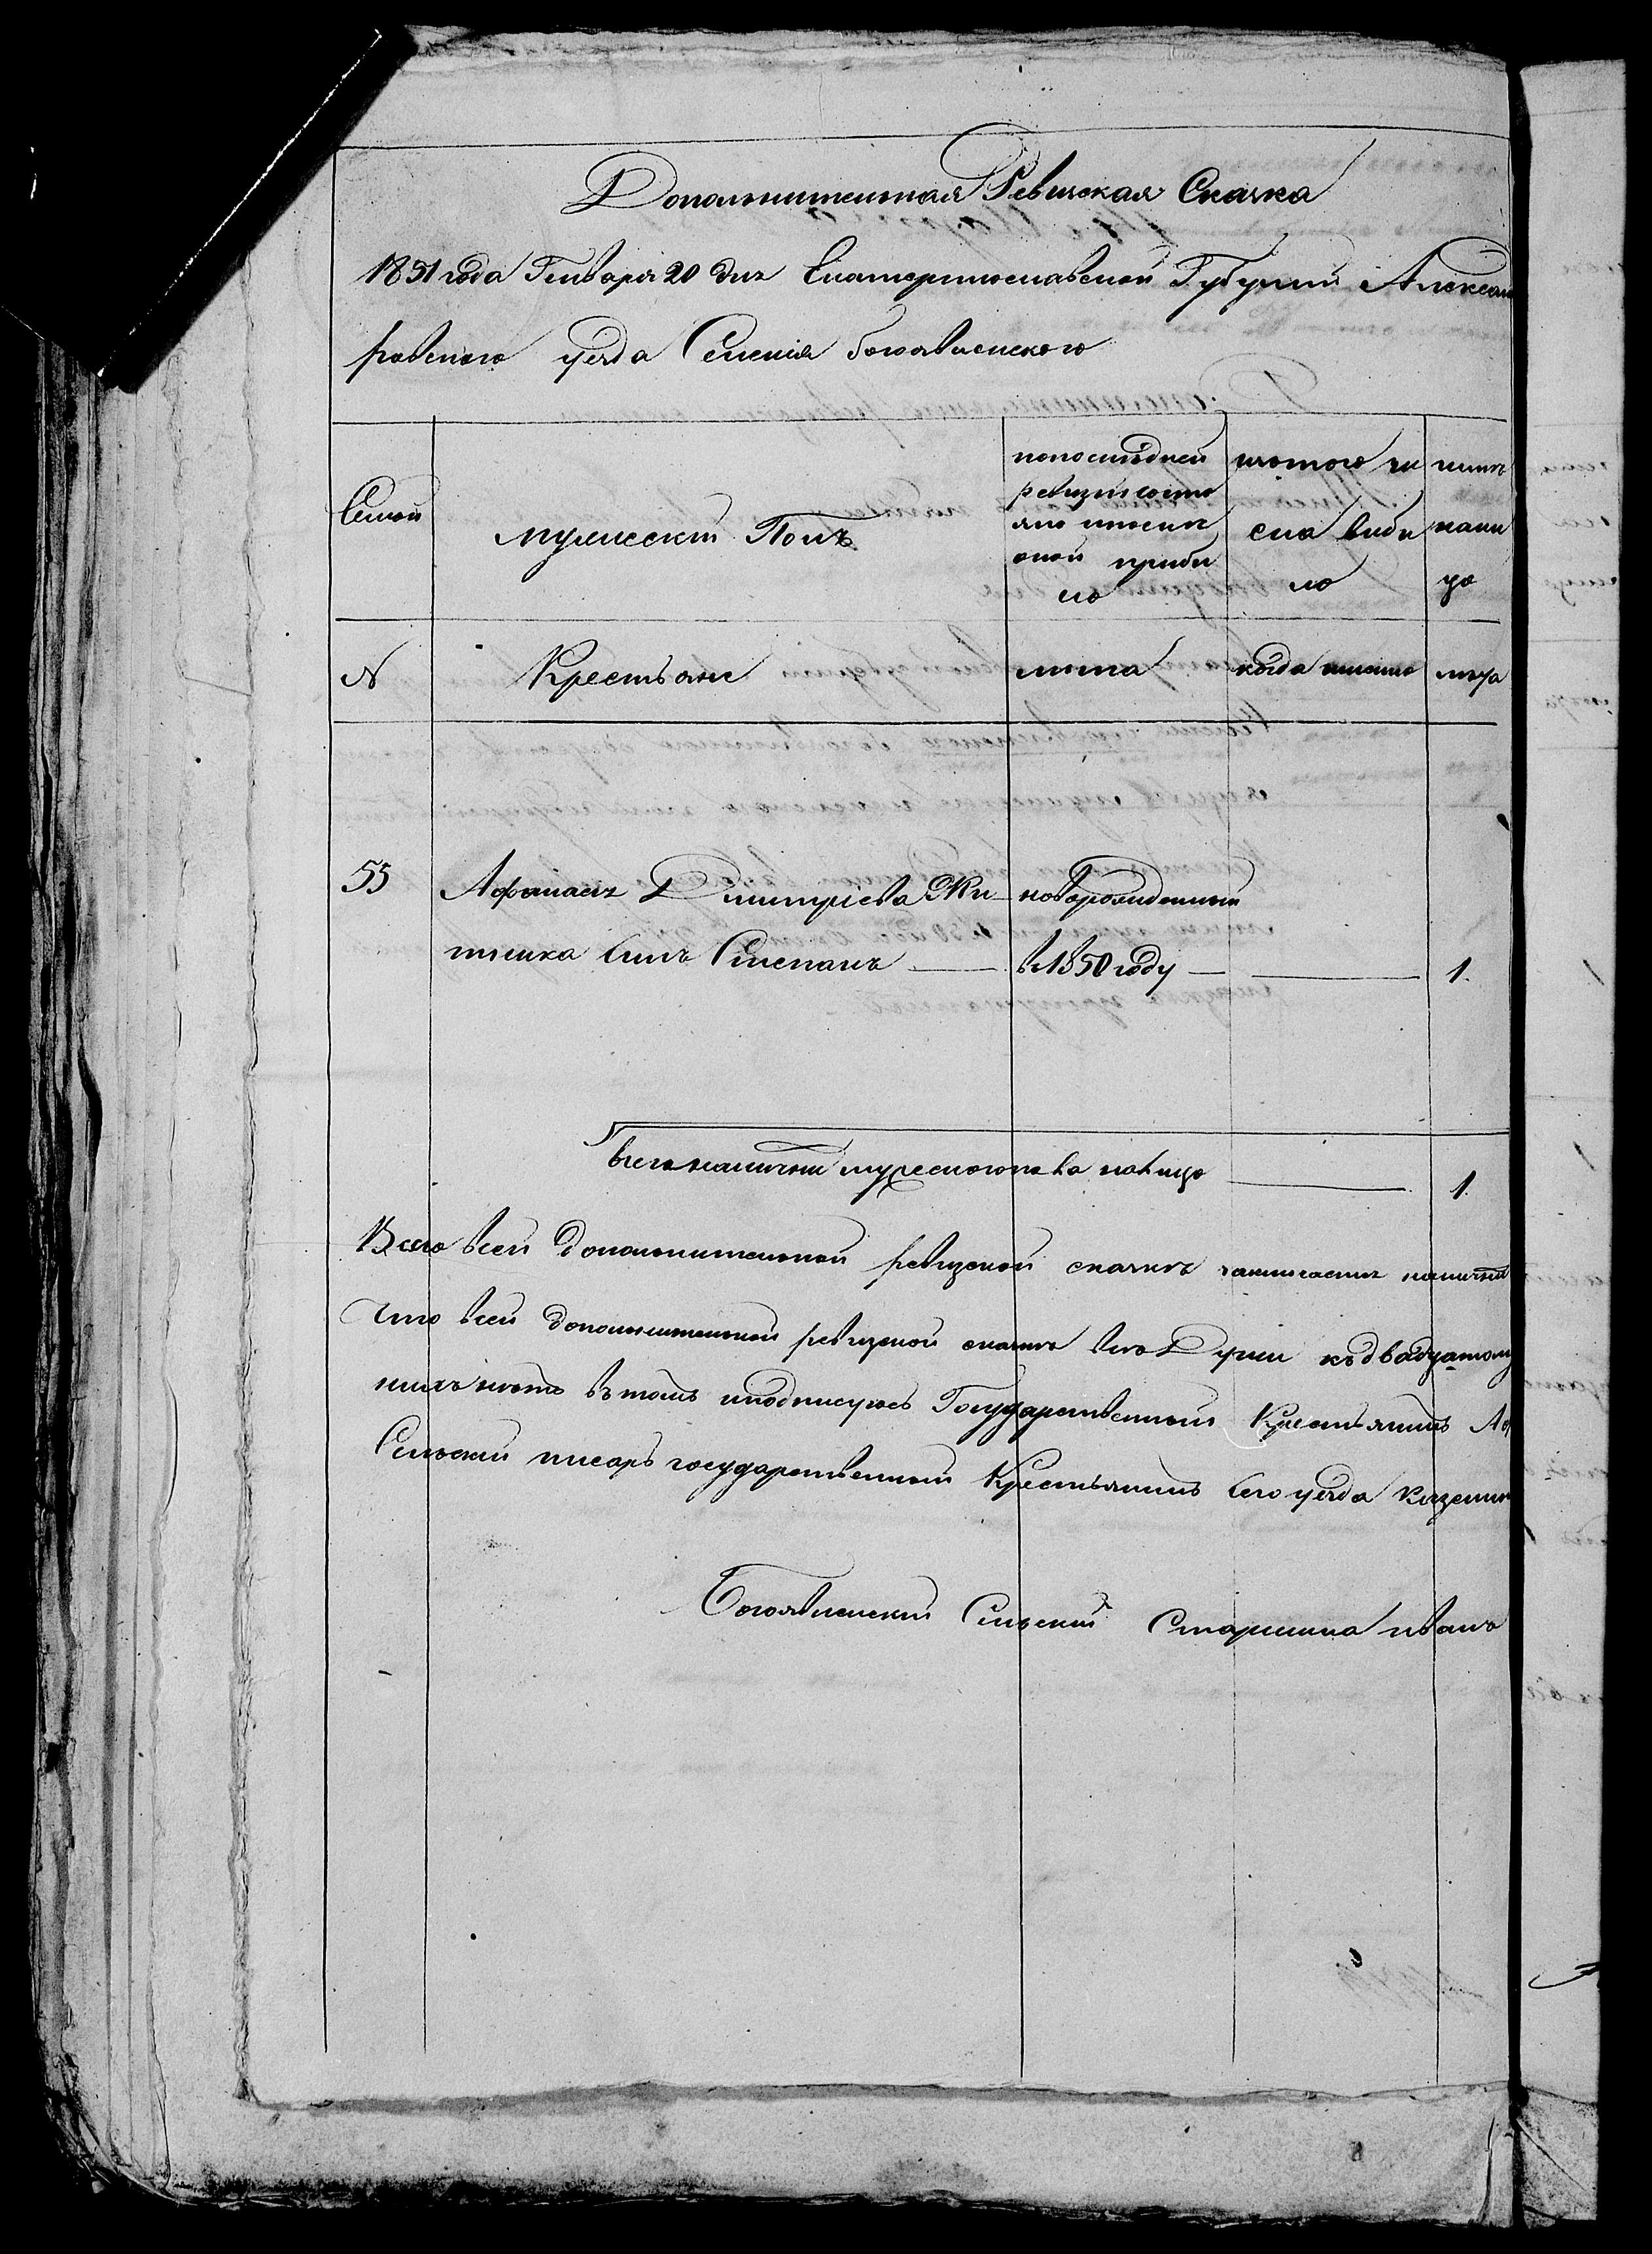 Дополнительная Ревизская Сказка
1851 года Генваря 20 дня Екатеринославской Губернии Алексан
ровского уезда Селения богоявленского
Семьи
мужеский Полъ
попоследней ревизіи состо яло ипослѣ оной прибы ло
изтого чи сла выбы ло
нынѣ нали цо
N
Крестьяне
лѣта
когда имянно
лѣта
55
Афанасія Дмитріева Жи новорожденный
тника сынъ Степанъ — в 1850 году — — 1.
всего наличныхъ мужеского пола налицо — 1.
Всего всей дополнительной ревизской сказкѣ заключается наличныхъ
Что всей дополнительной ревизской сказкѣ всѣ Души къ двадцатому
нихъ нѣтъ въ томъ иподписуюсь Государственный Крестьянинъ Аф
Сельский писарь государственный Крестьянинъ сего уезда
Богоявленский Сельский Старшина иванъ